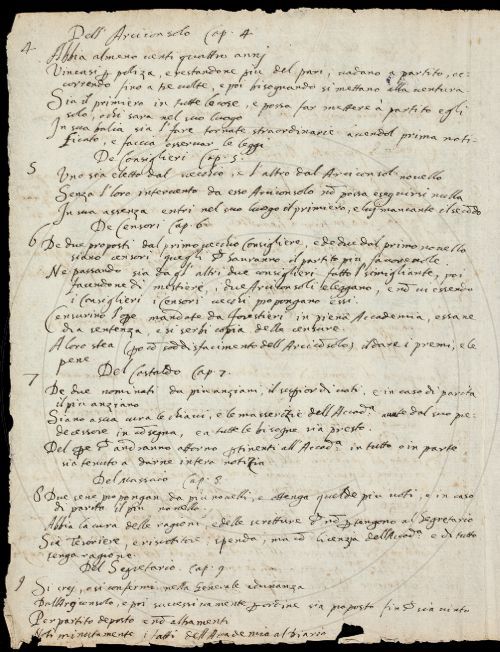 Dell'Arciconsolo Cap. 4
4 Abbia almeno venti quattro annj
Vincasi p poliza, e restandone più del pari, vadano a partito, oc-
correndo fino a tre volte, e poi bisognando si mettano alla ventura
Sia il primiero in tutte le cose, e possa far mettere à partito egli
solo, o chi sara nel suo luogo
In sua balia sia l'fare tornate straordinarie avendol prima noti-
ficato, e faccia osservar le leggi
De Consiglieri Cap. 5.
5 Uno sia eletto dal vecchio, e l'altro dal Arciconsol novello
Senza l'loro intervento da esso Arciconsolo nō possa eseguirsi nulla
In sua assenza entri nel suo luogo il primiero, e lui mancante il secōdo
De Censori Cap. 6
6 De due proposti dal primo vecchio Consigliere, e de due dal primo novello
siano censori quegli che sauranno il partito più favorevole
Ne passando sia da gl'altri due consiglieri fatto l'simigliante, poi
facendone di mestiere, i due Arciconsoli eleggano, e nō vi essendo
i Consiglieri i Censori vecchi propongano essi.
Censurino l'opere mandate da forestieri in piena Accademia, essa ne
dia sentenza, e si serbi copia della censura
A loro stea (però cō soddisfacimento dell'Arciconsolo) il dare i premi, e le
pene
Del Castaldo Cap. 7.
7 De due nominati da più anziani, il superior di voti, e in caso di parità
il più anziano
Siano a sua cura le chiavi, e le masserizie dell'Accad.a avute dal suo pre-
decessore in cōsegna, e a tutte le bisogne sia presto.
Del che andranno attorno ptinenti all'Accad.a in tutto o in parte
sia tenuto a darne intera notizia
Del Massaio Cap. 8
8 Due sene propongan da più novelli, e ottenga quel de più voti, e in caso
di parità il più novello.
Abbia la cura delle ragioni, e delle scritture che nō ptengono al Segretario
Sia Tesoriere, e riscotitore, spenda, ma cō licenza dell'Accad.a e di tutto
tenga ragione
Del Segretario. Cap. 9
9 Si crej, o si confermi nella Generale adunanza
Dall'Arciconsolo, e poi successivamente p ordine sia proposto finche sia vinto
Per partito deposto e nō altramenti
Noti minutamente i fatti dell'Accademia al Diario